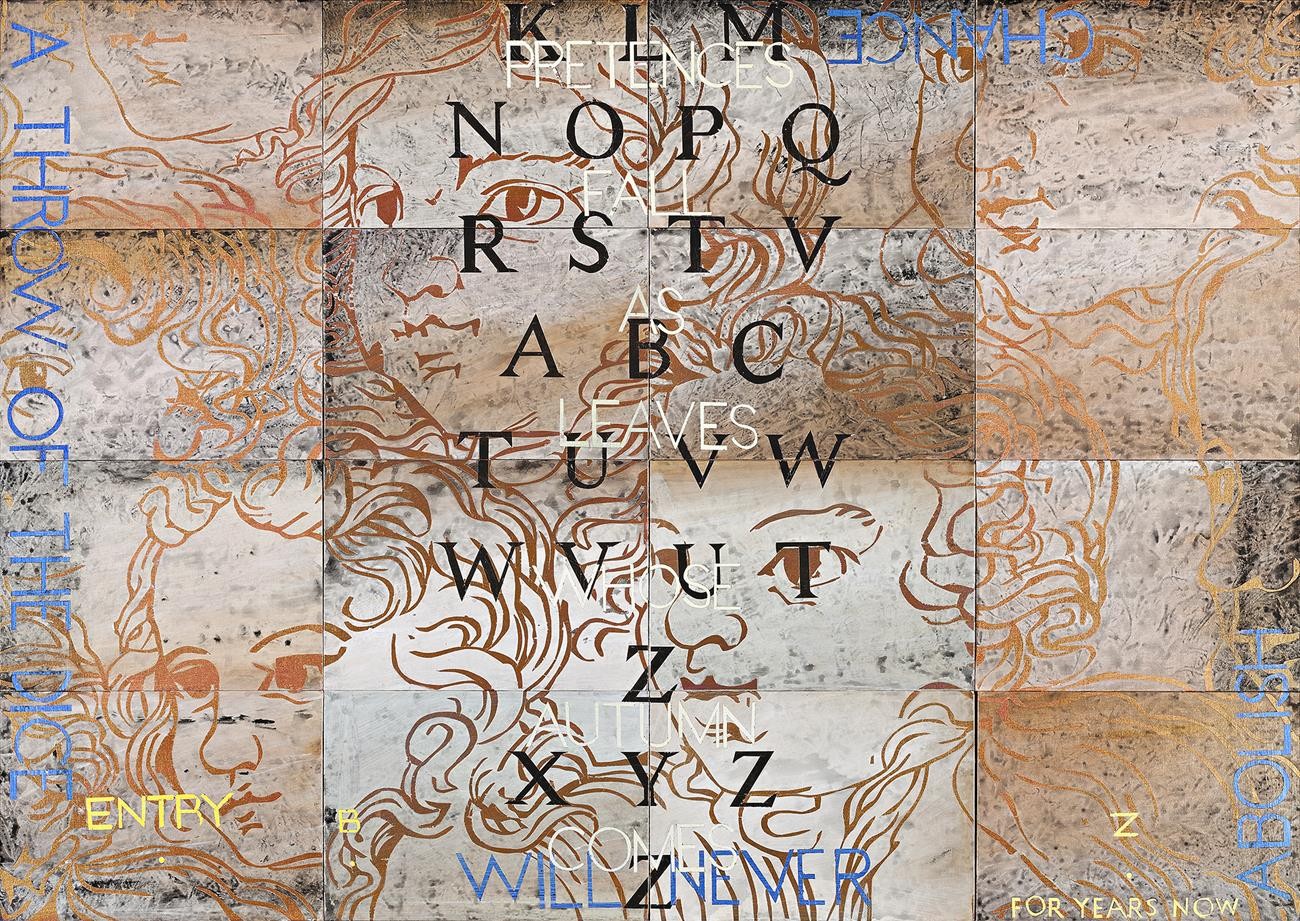 K L M
PRETENCES
N O P Q
FALL
R S T V
AS
A B C
LEAVES
T U V W
W V U T
WHOSE
Z
AUTUMN
X Y Z
COMES
Z
A THROW OF THE DICE
WILL NEVER
ABOLISH
CHANCE
ENTRY
B
Z
FOR YEARS NOW